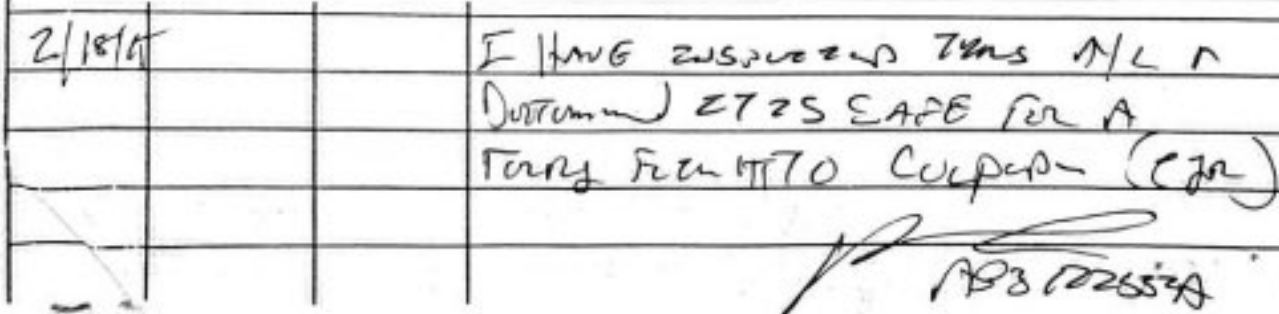 2/18/15 I HAVE INSPECTED THIS A/C &
DETERMINED IT IS SAFE FOR A
FERRY FLIGHT TO CULPEPER (CJR)